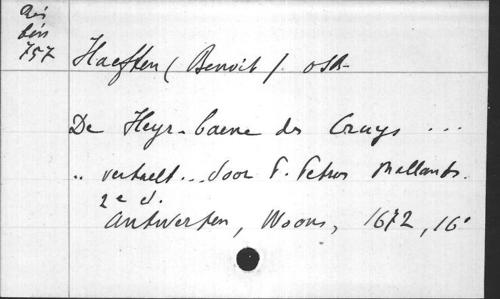 757
Haeften (Benoit). OSB-
De Heyr-baene des Cruys ...
.. verhaelt ... door P. Petrus Mallants.
2e d.
Antwerpen, Woons, 1672, 16°